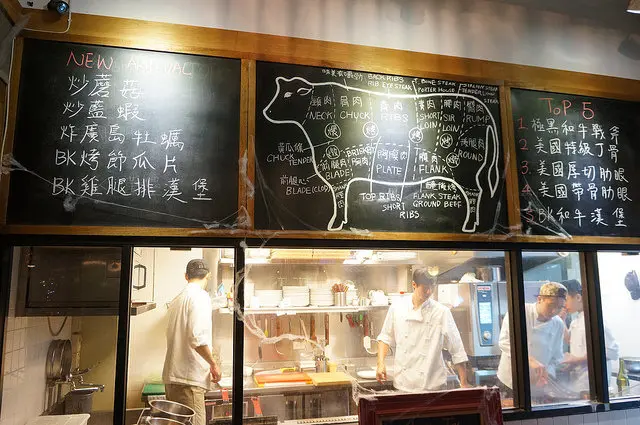 NEW ARRIVAL
炒蘑菇
炒蠱蝦
炸廣島牡蠣
BK烤節瓜片
BK雞腿排漢堡
BACK RIBS
RIB EYE STEAK
T BONE STEAK
PORTER HOUSE
頸肉
NECK
肩肉
CHUCK
肋肉
RIBS
SHORT
LOIN
腰肉
SIR
LOIN
臀肉
RUMP
黃瓜條
CHUCK
TENDER
BLADE
胸腹肉
PLATE
腹肉
FLANK
ROUND
BLADE(CLOD)
TOP RIBS
SHORT
RIBS
FLANK STEAK
GROUND BEEF
TOP 5
1. 極黑和牛戰斧
2. 美國特級丁骨
3. 美國厚切肋眼
4. 美國帶骨肋眼
5. BK和牛漢堡